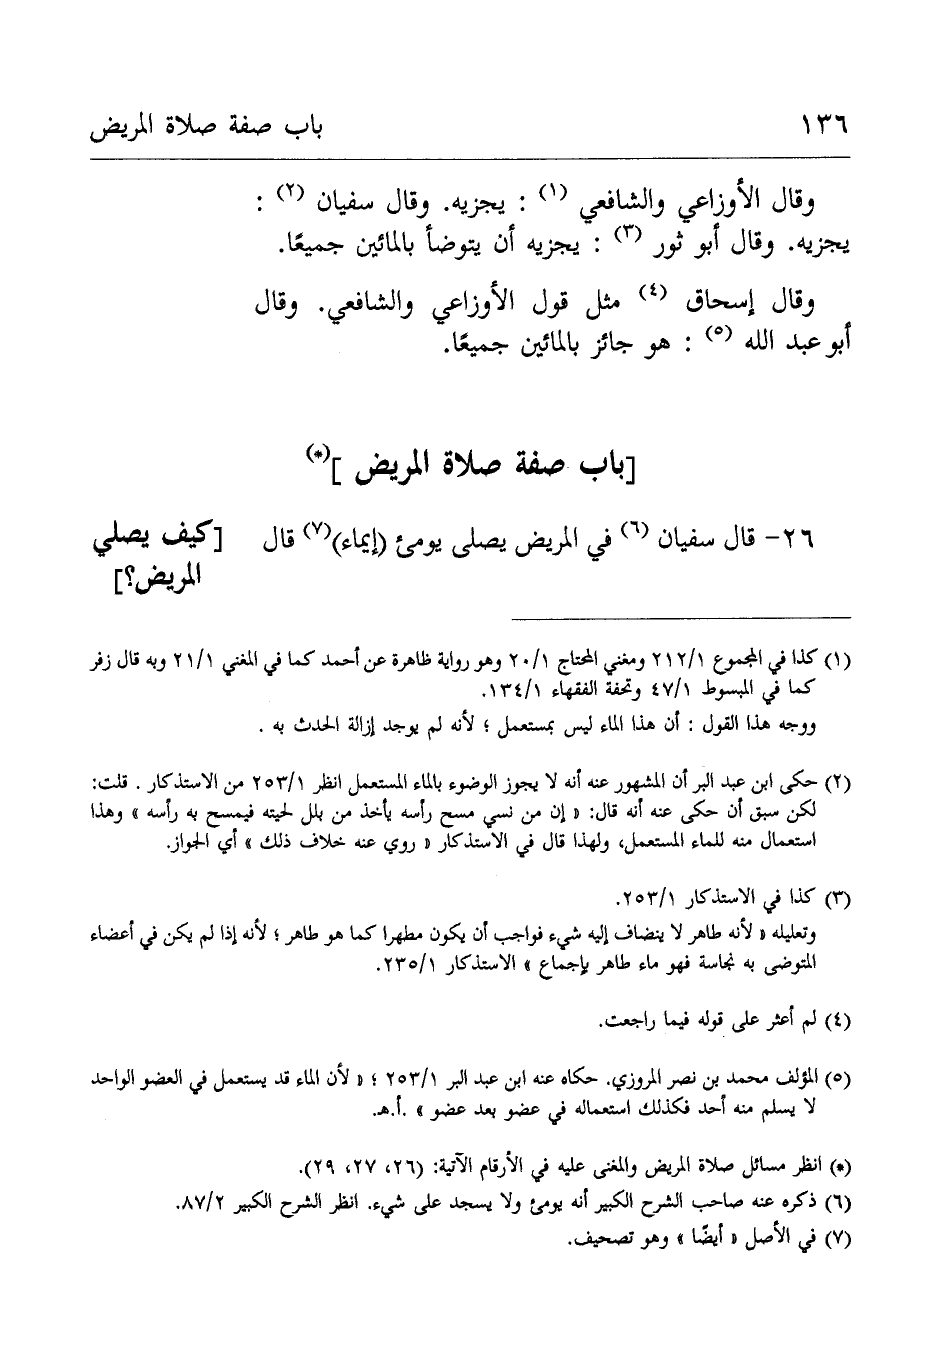 ١٣٦ باب صفة صلاة المريض
وقال الأوزاعي والشافعي (١) : يجزيه. وقال سفيان (٢) :
يجزيه. وقال أبو ثور (٣) : يجزيه أن يتوضأ بالمائين جميعًا.
وقال إسحاق (٤) مثل قول الأوزاعي والشافعي. وقال
أبو عبد الله (٥) : هو جائز بالمائين جميعًا.
[باب صفة صلاة المريض ](*)
٢٦- قال سفيان (٦) في المريض يصلى يومئ (إيماء)(٧) قال [كيف يصلي
المريض؟]
(١) كذا في المجموع ٢١٢/١ ومغني المحتاج ٢٠/١ وهو رواية ظاهرة عن أحمد كما في المغني ٢١/١ وبه قال زفر
كما في المبسوط ٤٧/١ وتحفة الفقهاء ١٣٤/١.
ووجه هذا القول : أن هذا الماء ليس بمستعمل ؛ لأنه لم يوجد إزالة الحدث به .
(٢) حكى ابن عبد البر أن المشهور عنه أنه لا يجوز الوضوء بالماء المستعمل انظر ٢٥٣/١ من الاستذكار . قلت:
لكن سبق أن حكى عنه أنه قال: « إن من نسي مسح رأسه يأخذ من بلل لحيته فيمسح به رأسه » وهذا
استعمال منه للماء المستعمل، ولهذا قال في الاستذكار « روي عنه خلاف ذلك » أي الجواز.
(٣) كذا في الاستذكار ٢٥٣/١.
وتعليله « لأنه طاهر لا ينضاف إليه شيء فواجب أن يكون مطهرا كما هو طاهر ؛ لأنه إذا لم يكن في أعضاء
المتوضى به نجاسة فهو ماء طاهر بإجماع » الاستذكار ٢٣٥/١.
(٤) لم أعثر على قوله فيما راجعت.
(٥) المؤلف محمد بن نصر المروزي. حكاه عنه ابن عبد البر ٢٥٣/١ ؛ « لأن الماء قد يستعمل في العضو الواحد
لا يسلم منه أحد فكذلك استعماله في عضو بعد عضو » .أ.هـ.
(*) انظر مسائل صلاة المريض والمغنى عليه في الأرقام الآتية: (٢٦، ٢٧، ٢٩).
(٦) ذكره عنه صاحب الشرح الكبير أنه يومئ ولا يسجد على شيء. انظر الشرح الكبير ٨٧/٢.
(٧) في الأصل « أيضًا » وهو تصحيف.